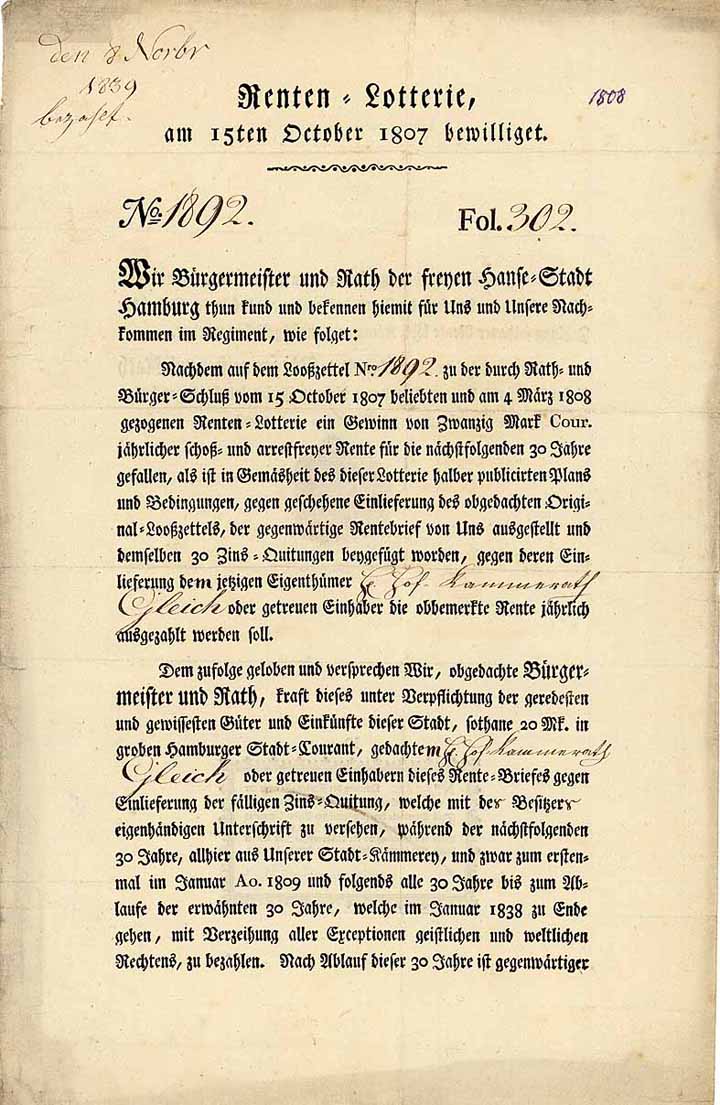 den 8 Novbr
1839
bezahlt.
Renten-Lotterie,
1808
am 15ten October 1807 bewilliget.
No. 1892.
Fol. 302.
Wir Bürgermeister und Rath der freyen Hanse-Stadt
Hamburg thun kund und bekennen hiemit für Uns und Unsere Nach-
kommen im Regiment, wie folget:
Nachdem auf dem Looßzettel Nro 1892. zu der durch Rath- und
Bürger-Schluß vom 15 October 1807 beliebten und am 4 März 1808
gezogenen Renten-Lotterie ein Gewinn von Zwanzig Mark Cour.
jährlicher schoß- und arrestfreyer Rente für die nächstfolgenden 30 Jahre
gefallen, als ist in Gemäsheit des dieser Lotterie halber publicirten Plans
und Bedingungen, gegen geschehene Einlieferung des obgedachten Origi-
nal-Looßzettels, der gegenwärtige Rentebrief von Uns ausgestellt und
demselben 30 Zins-Quitungen beygefügt worden, gegen deren Ein-
lieferung dem jetzigen Eigenthümer H. Hof-Kammerath
Gleich oder getreuen Einhaber die obbemerkte Rente jährlich
ausgezahlt werden soll.
Dem zufolge geloben und versprechen Wir, obgedachte Bürger-
meister und Rath, kraft dieses unter Verpflichtung der geredesten
und gewissesten Güter und Einkünfte dieser Stadt, sothane 20 Mk. in
groben Hamburger Stadt-Courant, gedachtem H. Hof-Kammerath
Gleich oder getreuen Einhabern dieses Rente-Briefes gegen
Einlieferung der fälligen Zins-Quitung, welche mit des Besitzers
eigenhändigen Unterschrift zu versehen, während der nächstfolgenden
30 Jahre, allhier aus Unserer Stadt-Kämmerey, und zwar zum ersten-
mal im Januar Ao. 1809 und folgends alle 30 Jahre bis zum Ab-
laufe der erwähnten 30 Jahre, welche im Januar 1838 zu Ende
gehen, mit Verzeihung aller Exceptionen geistlichen und weltlichen
Rechtens, zu bezahlen. Nach Ablauf dieser 30 Jahre ist gegenwärtiger